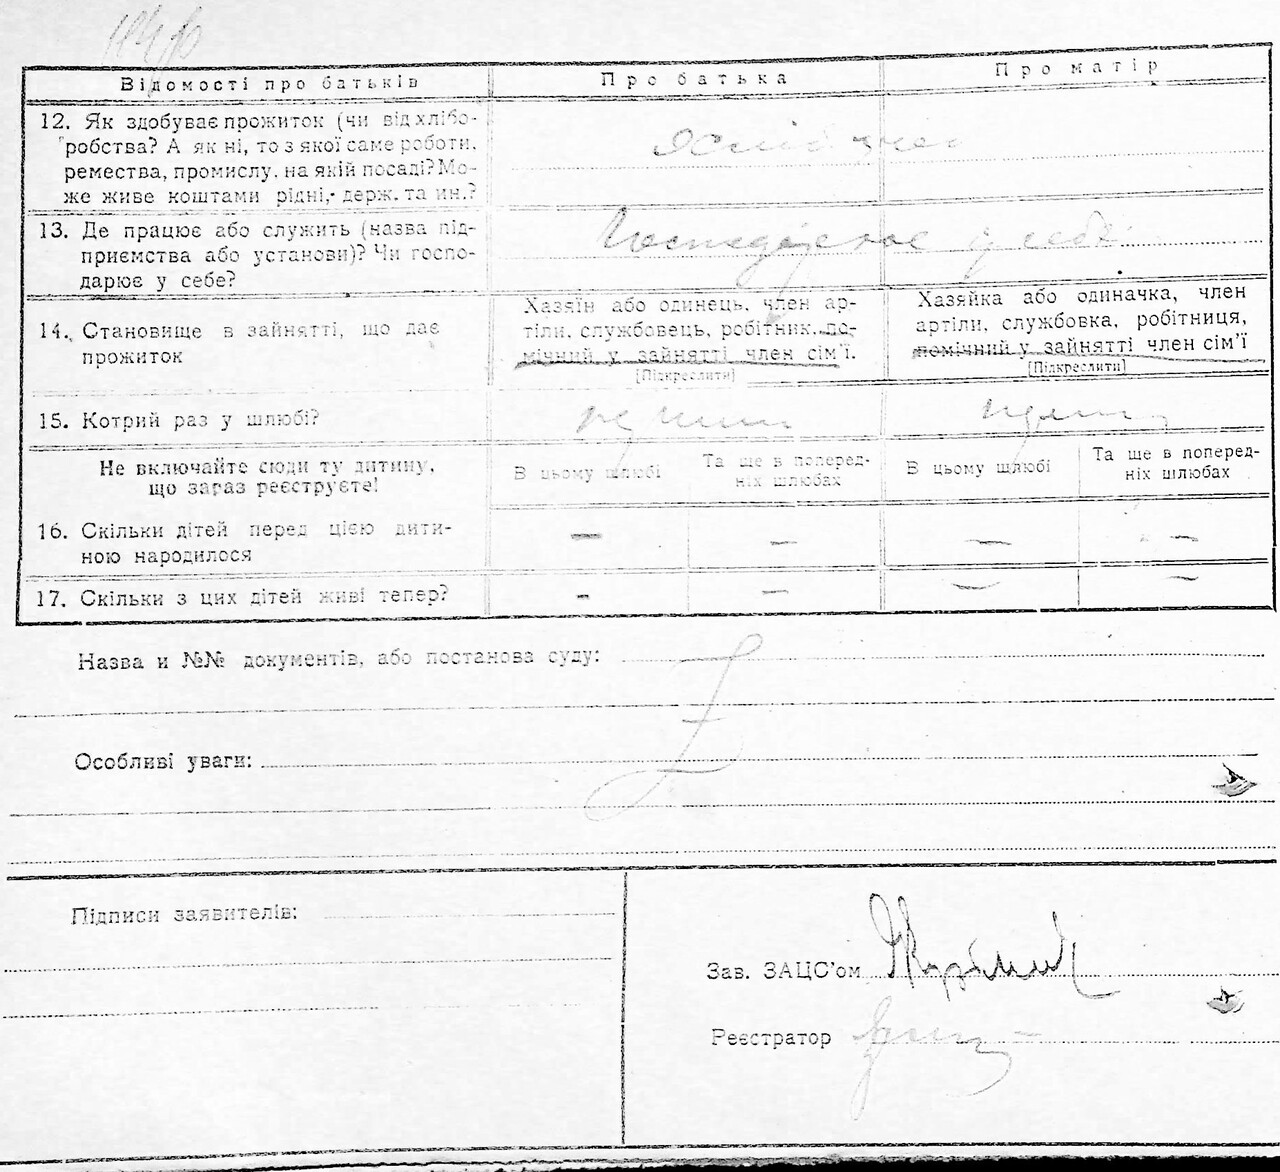 Відомості про батьків
Про батька
Про матір
12. Як здобуває прожиток (чи від хлібо-
робства? А як ні, то з якої саме роботи,
ремества, промислу, на якій посаді? Мо-
же живе коштами рідні,- держ. та ин.?
13. Де працює або служить (назва під-
приємства або установи)? Чи госпо-
дарює у себе?
у себе
14. Становище в зайнятті, що дає
прожиток
Хазяїн або одинець, член ар-
тіли, службовець, робітник, по-
мічний у зайнятті член сім'ї.
[Підкреслити]
Хазяйка або одиначка, член
артіли, службовка, робітниця,
помічний у зайнятті член сім'ї
[Підкреслити]
15. Котрий раз у шлюбі?
Не включайте сюди ту дитину,
що зараз реєструєте!
В цьому шлюбі
Та ще в поперед-
ніх шлюбах
В цьому шлюбі
Та ще в поперед-
ніх шлюбах
16. Скільки дітей перед цією дити-
ною народилося
— — — —
17. Скільки з цих дітей живі тепер?
- — — —
Назва и №№ документів, або постанова суду:
Особливі уваги:
Підписи заявителів:
Зав. ЗАЦС'ом
Реєстратор